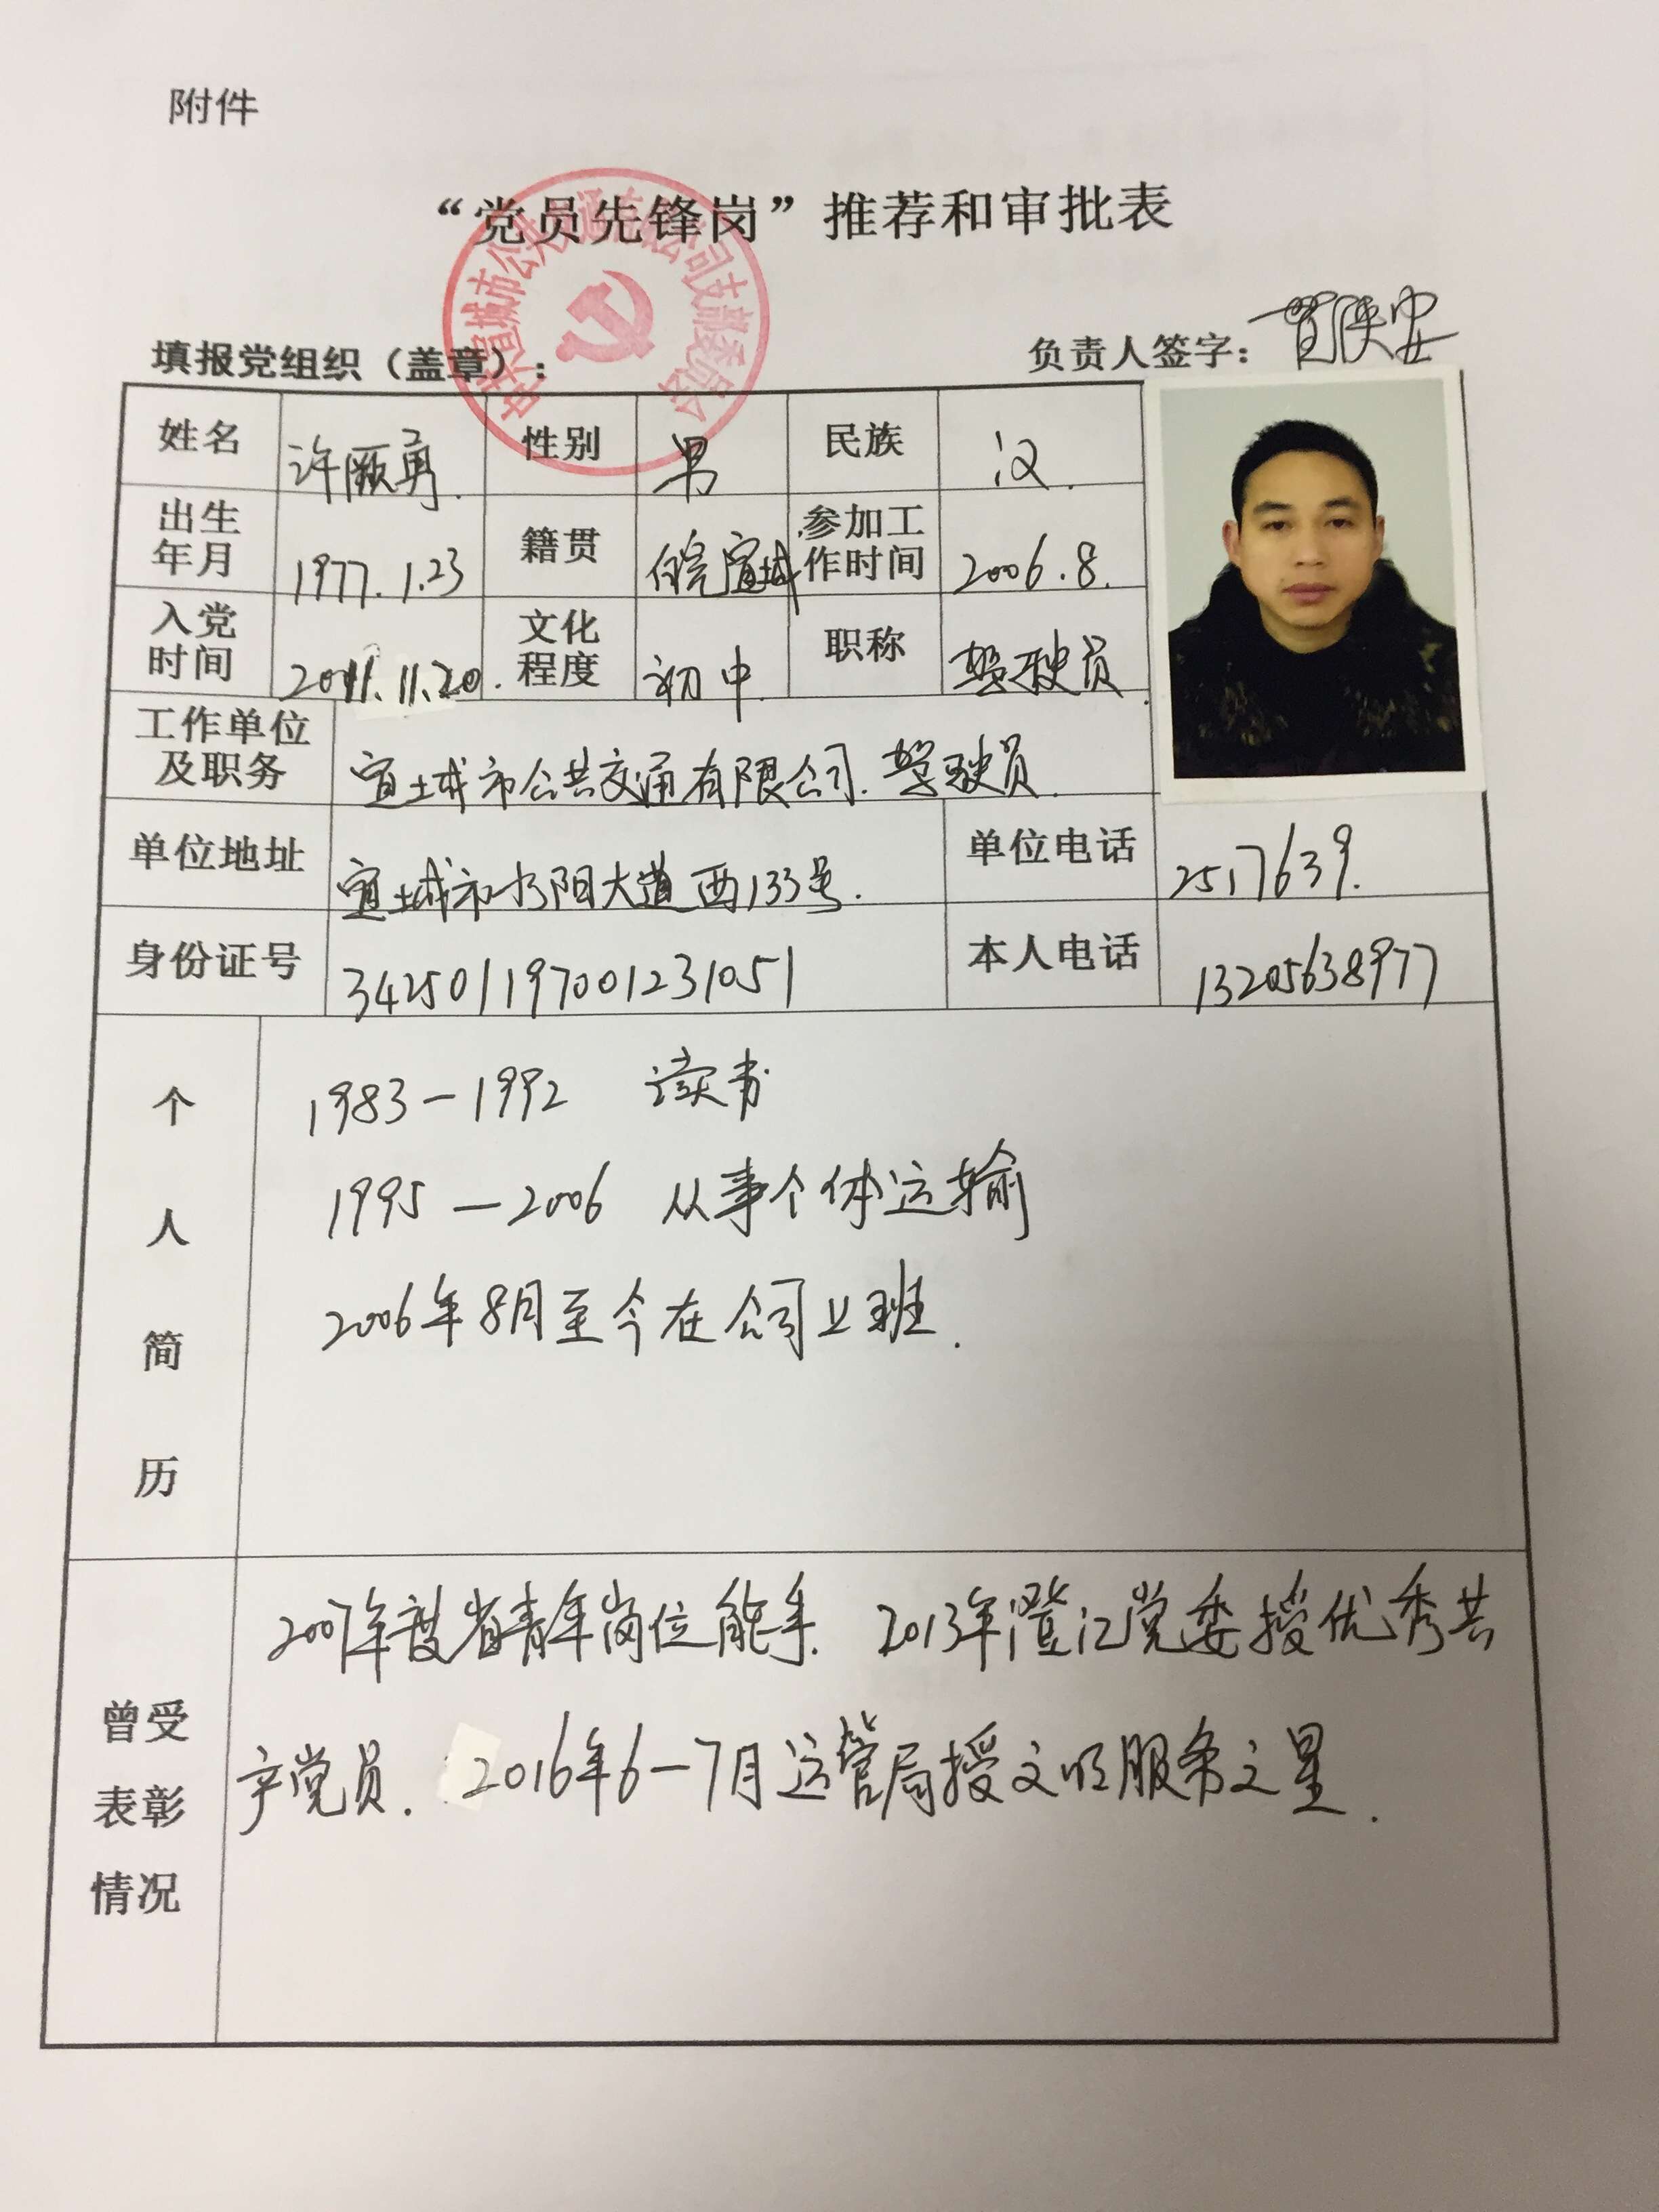 附件
“党员先锋岗”推荐和审批表
填报党组织（盖章）：
负责人签字：
姓名 许顺勇. 性别 男 民族 汉.
出生年月 1977.1.23 籍贯 宣城 参加工作时间 2006.8.
入党时间 2011.11.20. 文化程度 初中. 职称 驾驶员.
工作单位及职务 宣城市公共交通有限公司.驾驶员.
单位地址 宣城市水阳大道西133号. 单位电话 2517639.
身份证号 342501197001231051 本人电话 13205638977
个人简历
1983-1992 读书
1995-2006 从事个体运输
2006年8月至今在公司上班.
曾受表彰情况
2007年度省青年岗位能手. 2013年澄江党委授优秀共
产党员. 2016年6-7月运管局授文明服务之星.